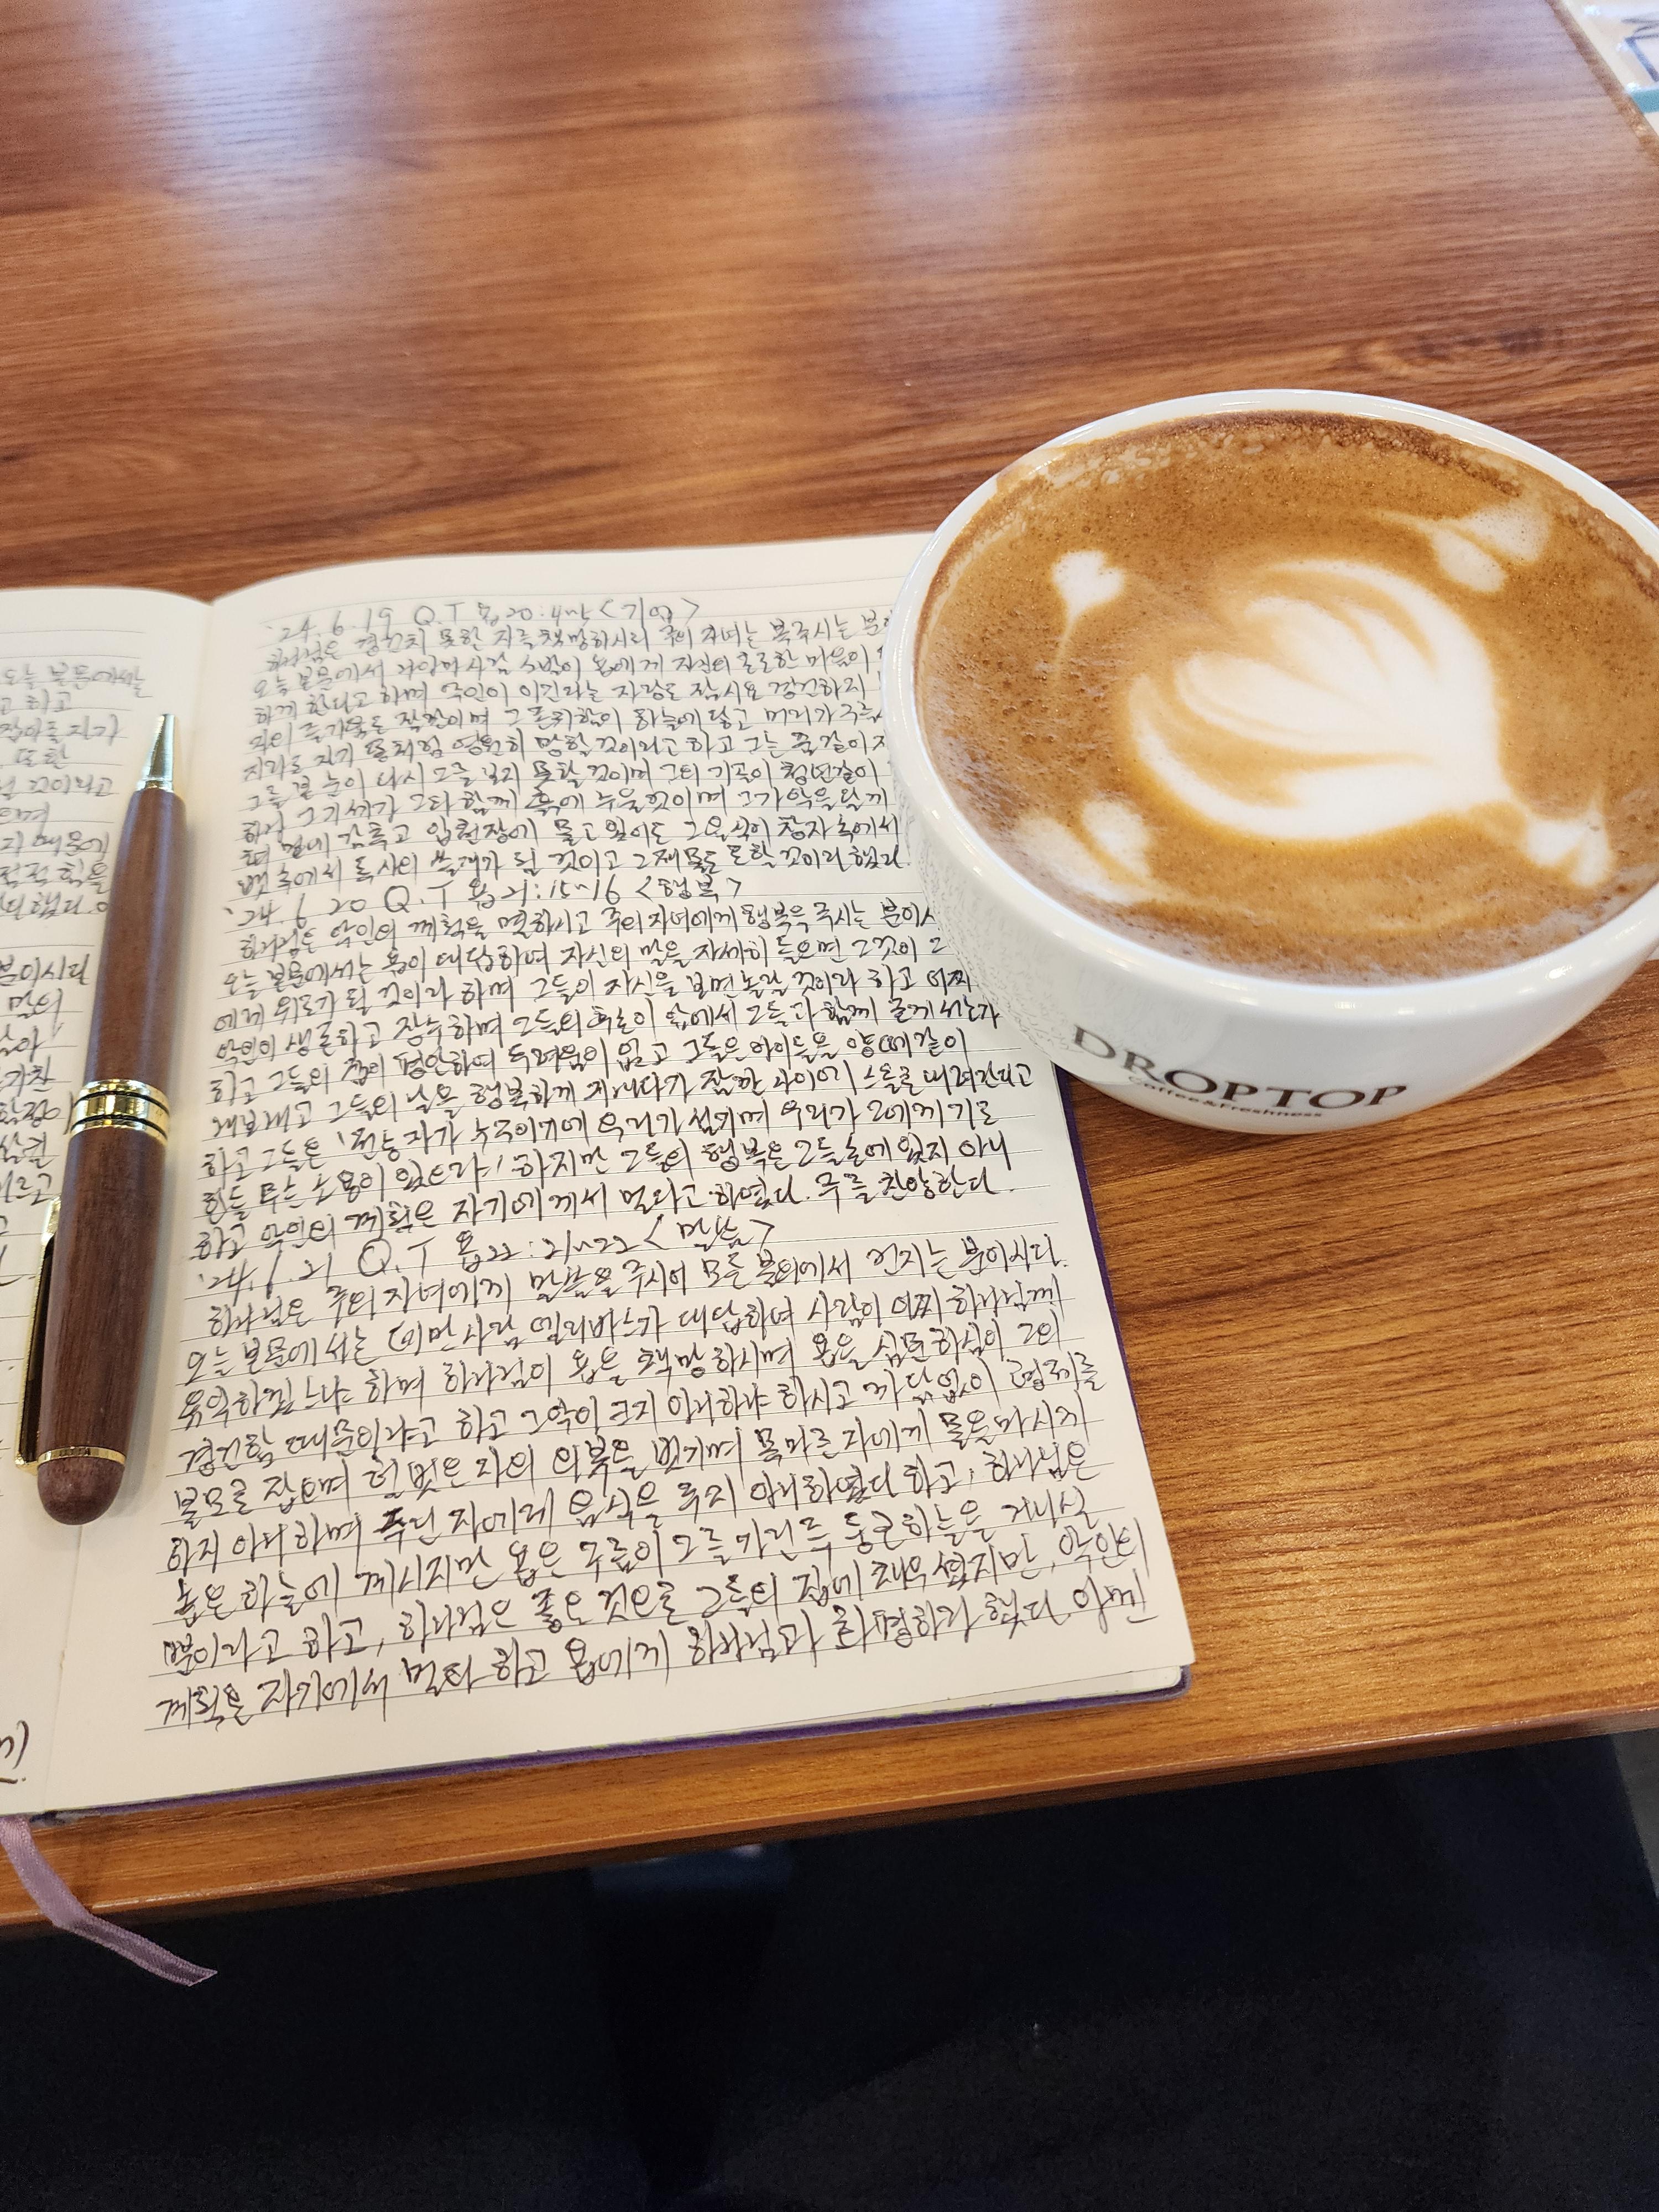 오늘 본문에서는
고 하고
잡아도 자가
또한
것이라고
지 때문에
분이시다
말의
'24.6.19 Q.T 욥20: <기억>
하나님은 경건치 못한 자를 책망하시며 주의 자녀는 복주시는
오늘 본문에서 나아마 사람 소발이 욥에게 자신의 초조한 마음이
하게 한다고 하며 악인이 이긴다는 자랑도 잠시요 경건하지
자의 즐거움도 잠깐이며 그 존귀함이 하늘에 닿고 머리가
자라도 자기 똥처럼 영원히 망할 것이라고 하고 그는 꿈 같이
그를 본 눈이 다시 그를 보지 못할 것이며 그의 기골이 청년같이
하나 그 기세가 그와 함께 흙에 누울것이며 그가 악을 달게
혀 밑에 감추고 입천장에 물고 있어도 그 음식이 창자 속에서
뱃 속에서 독사의 쓸개가 될 것이고 그 재물도 토할 것이라 했다
'24.6.20 Q.T 욥21:15~16 <행복>
하나님은 악인의 계획을 멸하시고 주의 자녀에게 행복을 주시는
오늘 본문에서는 욥이 대답하며 자신의 말을 자세히 들으면 그것이
에게 위로가 될 것이라 하며 그들이 자신을 보면 놀랄 것이라 하고 어찌
악인이 생존하고 장수하며 그들의 후손이 앞에서 그들과 함께 굳게 서는가
하고 그들의 집이 평안하여 두려움이 없고 그들은 아이들을 양떼같이
내보내고 그들의 날을 행복하게 지내다가 잠깐 사이에 스올로 내려간다고
하고 그들은 '전능자가 누구이기에 우리가 섬기며 우리가 그에게 기도
한들 무슨 소용이 있으랴!' 하지만 그들의 행복은 그들 손에 있지 아니
하고 악인의 계획은 자기에게서 멀다고 하였다. 주를 찬양한다.
'24.6.21 Q.T 욥22:21~22 <말씀>
하나님은 주의 자녀에게 말씀을 주시어 모든 불의에서 건지는 분이시다.
오늘 본문에서는 데만 사람 엘리바스가 대답하여 사람이 어찌 하나님께
유익하겠느냐 하며 하나님이 욥을 책망하시며 욥을 심문하심이 그의
경건함 때문이냐고 하고 그 악이 크지 아니하냐 하시고 까닭 없이 형제를
볼모로 잡으며 헐벗은 자의 의복을 벗기며 목마른 자에게 물을 마시게
하지 아니하며 주린 자에게 음식을 주지 아니하였다 하고, 하나님은
높은 하늘에 계시지만 욥은 구름이 그를 가린 즉 둥근 하늘을 거니실
뿐이라고 하고, 하나님은 좋은 것으로 그들의 집에 채우셨지만, 악인의
계획은 자기에게서 멀다 하고 욥에게 하나님과 화평하라 했다. 아멘
DROPTOP
Coffee&Freshness